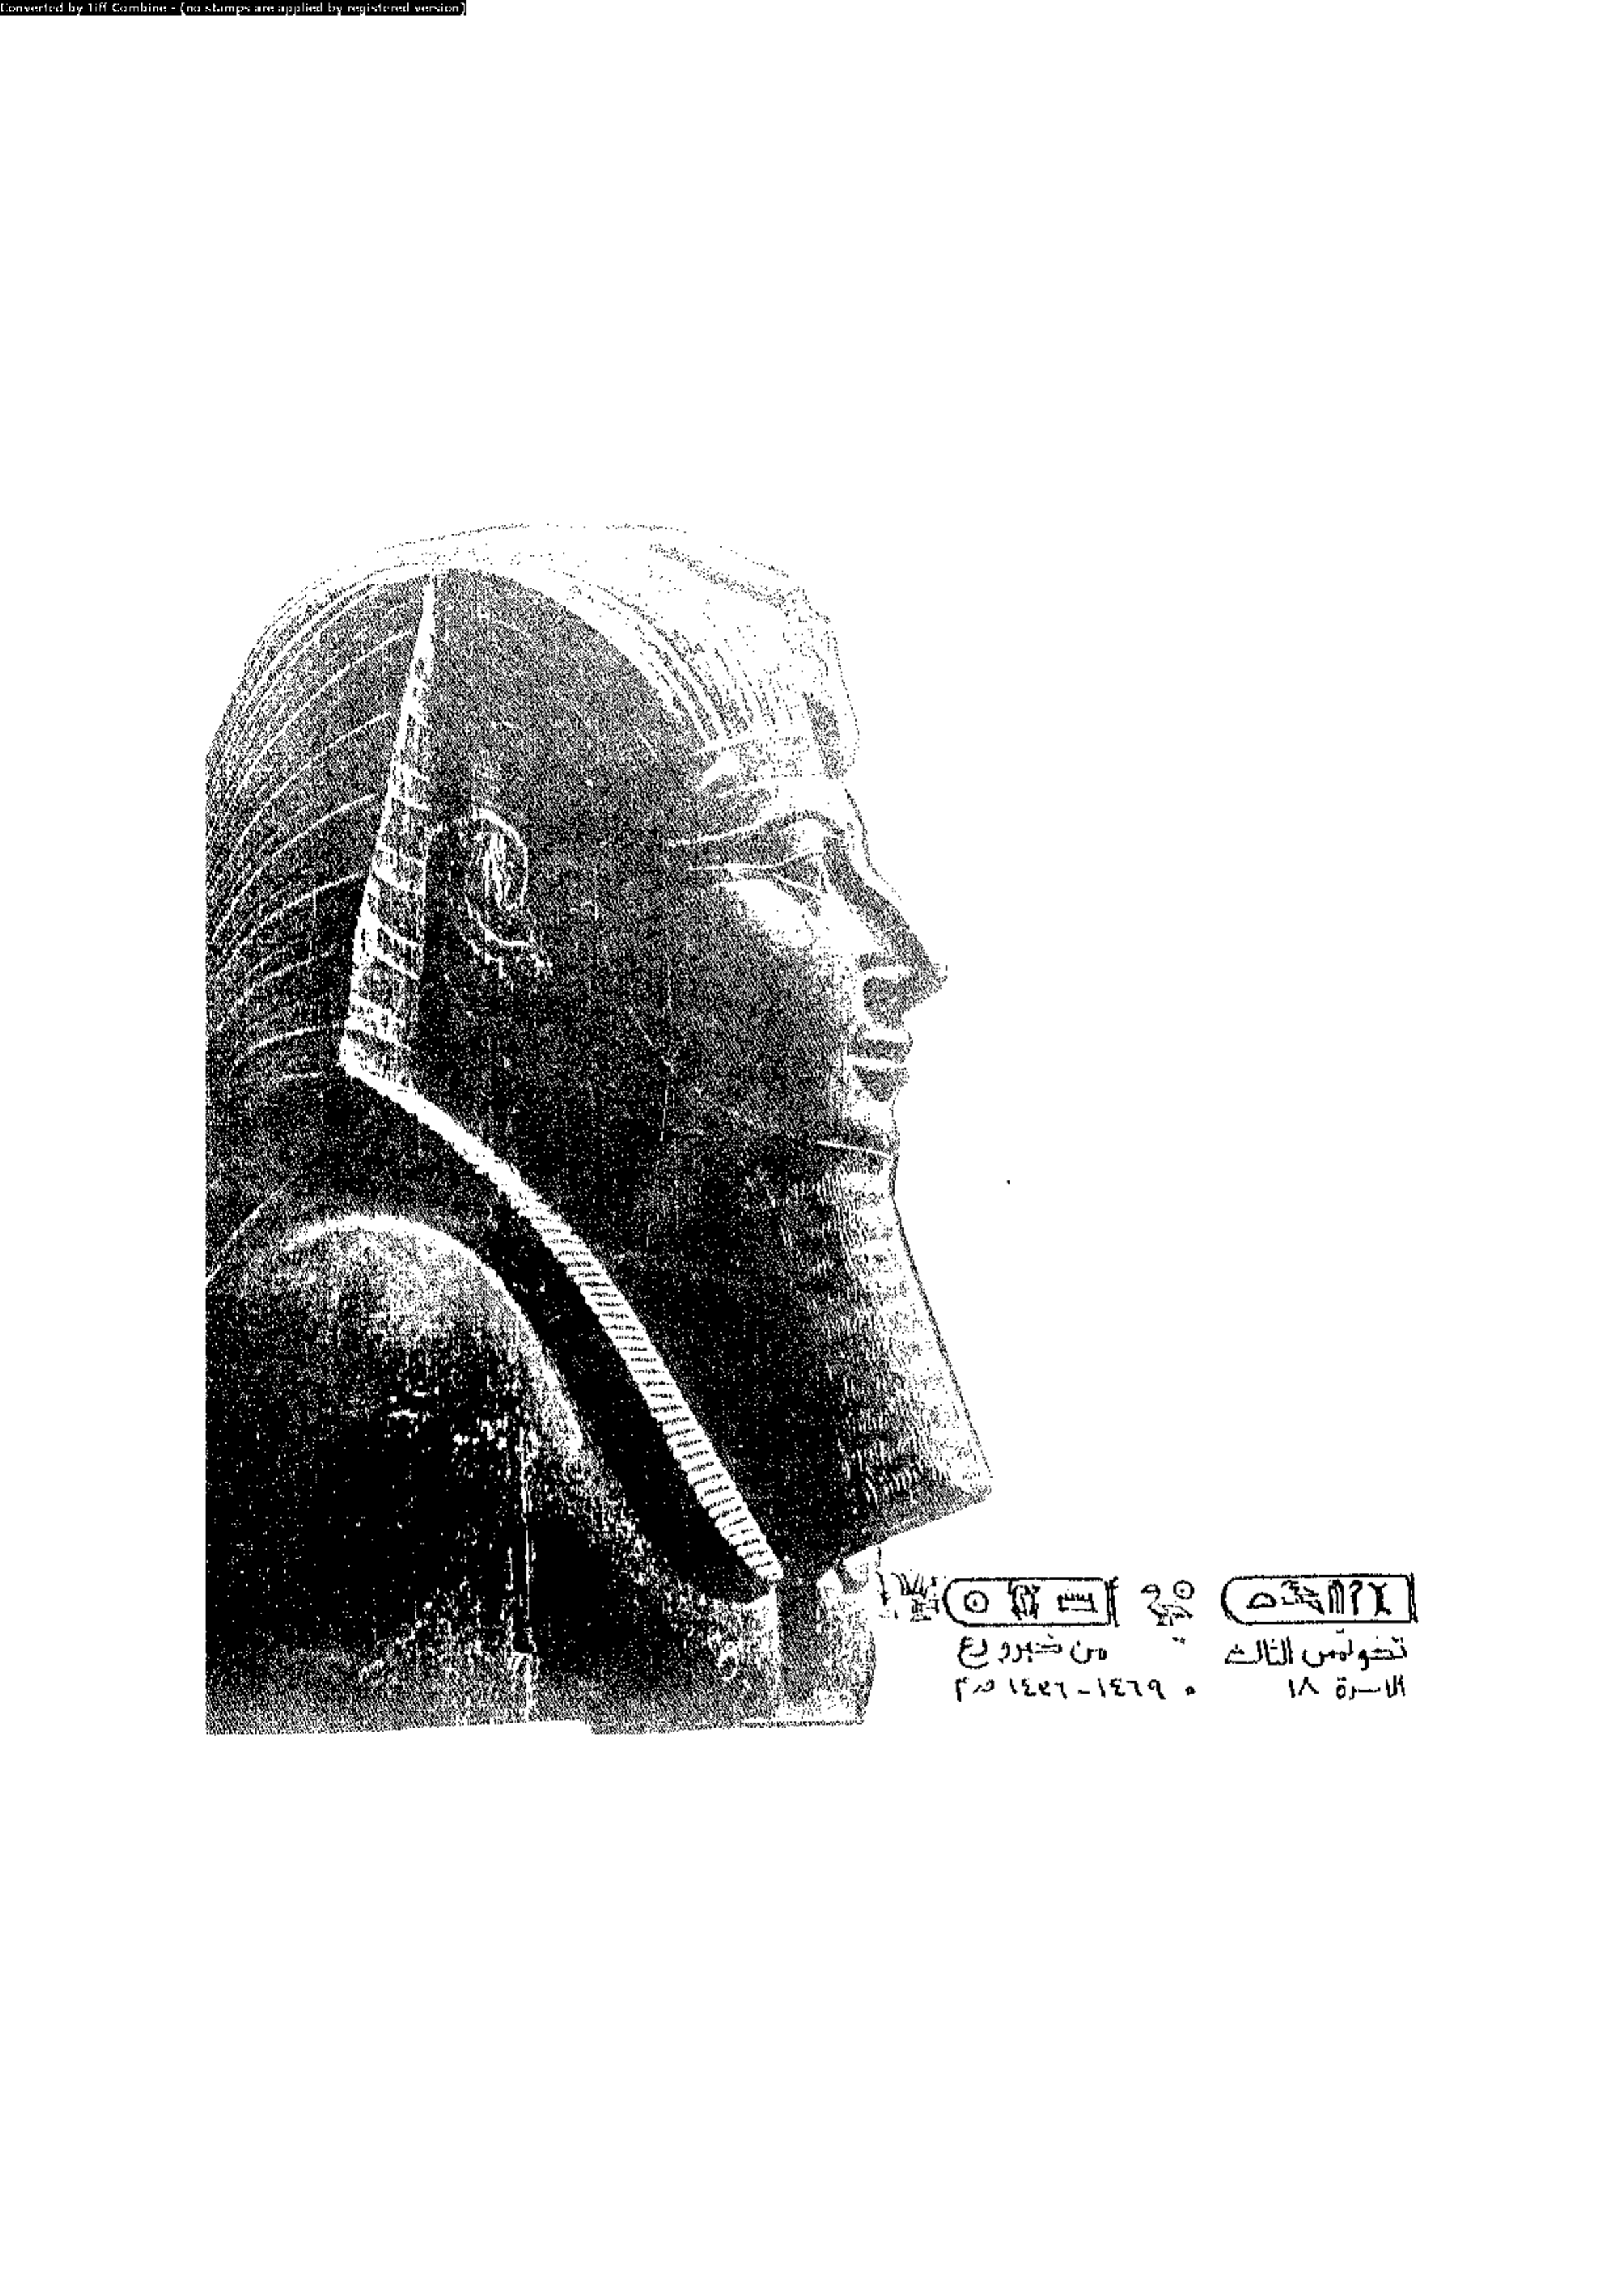 Converted by Tiff Combine - (no stamps are applied by registered version)
تحوتمس الثالث من خبرو رع
الاسرة ١٨